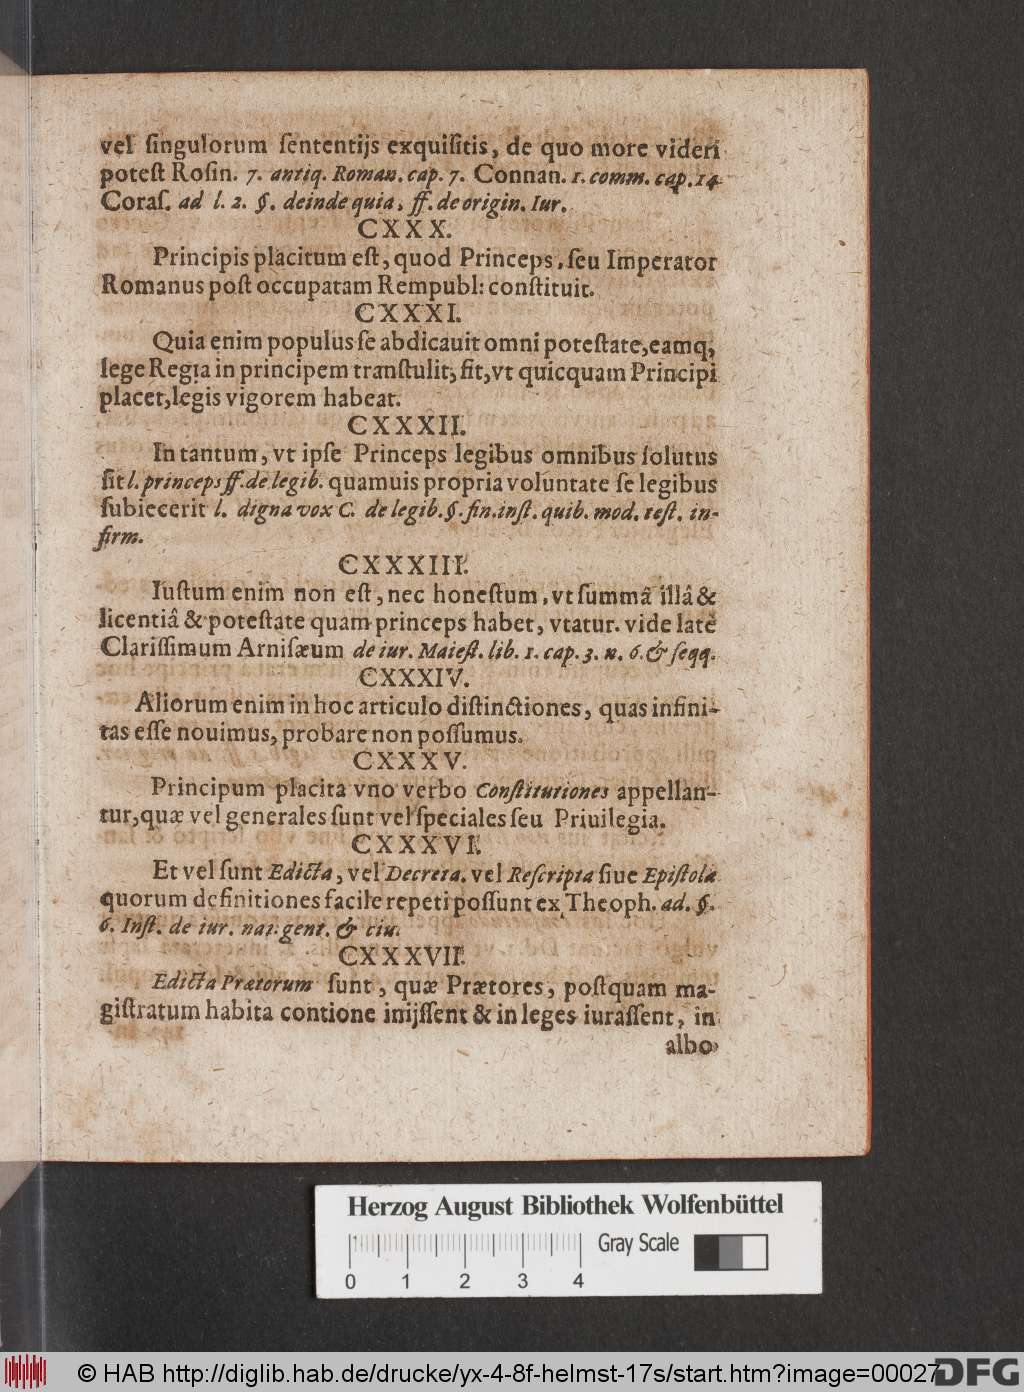 vel ſingulorum ſententijs exquiſitis, de quo more videri
poteſt Roſin. 7. antiq. Roman. cap. 7. Connan. 1. comm. cap. 14
Coraſ. ad l. 2. §. deinde quia, ff. de origin. Iur.
CXXX.
Principis placitum eſt, quod Princeps, ſeu Imperator
Romanus poſt occupatam Rempubl: conſtituit.
CXXXI.
Quia enim populus ſe abdicauit omni poteſtate, eamq;
lege Regia in principem tranſtulit, fit, vt quicquam Principi
placet, legis vigorem habeat.
CXXXII.
In tantum, vt ipſe Princeps legibus omnibus ſolutus
ſit l. princeps ff. de legib. quamuis propria voluntate ſe legibus
ſubiecerit l. digna vox C. de legib. §. fin. inſt. quib. mod. teſt. in-
firm.
CXXXIII.
Iuſtum enim non eſt, nec honeſtum, vt ſummâ illâ &
licentiâ & poteſtate quam princeps habet, vtatur. vide latè
Clariſſimum Arniſæum de iur. Maieſt. lib. 1. cap. 3. n. 6. & ſeqq.
CXXXIV.
Aliorum enim in hoc articulo diſtinctiones, quas infini-
tas eſſe nouimus, probare non poſſumus.
CXXXV.
Principum placita vno verbo Conſtitutiones appellan-
tur, quæ vel generales ſunt vel ſpeciales ſeu Priuilegia.
CXXXVI.
Et vel ſunt Edicta, vel Decreta, vel Reſcripta ſiue Epiſtolæ
quorum definitiones facile repeti poſſunt ex Theoph. ad. §.
6. Inſt. de iur. nat. gent. & ciu.
CXXXVII.
Edicta Prætorum ſunt, quæ Prætores, poſtquam ma-
giſtratum habita contione inijſſent & in leges iuraſſent, in
albo
Herzog August Bibliothek Wolfenbüttel
Gray Scale
0 1 2 3 4
© HAB http://diglib.hab.de/drucke/yx-4-8f-helmst-17s/start.htm?image=00027
DFG